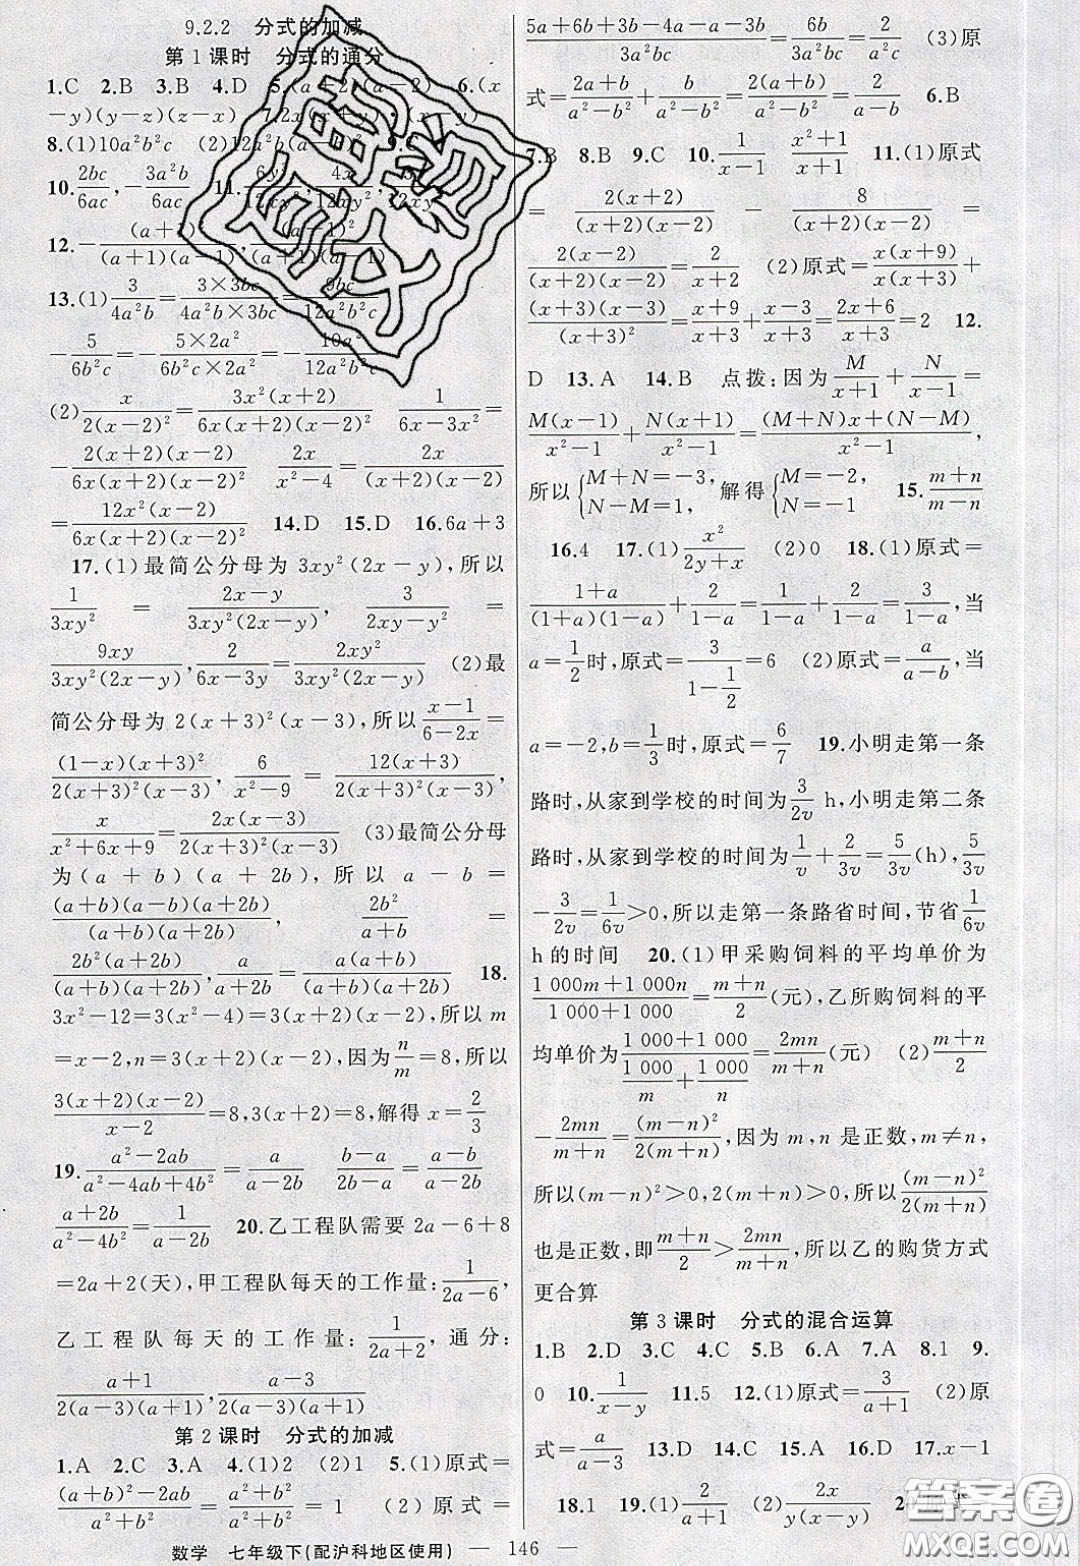 9.2.2 分式的加减
第1课时 分式的通分
1.C 2.B 3.B 4.D 5.(a+2)(a-2) 6.(x
-y)(y-z)(z-x) 7.2x(x+y)(x-y)
8.(1)10a²b²c (2)12a²b
10.2bc/6ac,-3a²b/6ac 11.6y/12xy²,4x/12xy²
12.-(a+1)/(a+1)(a-1),(a-1)/(a+1)(a-1)
13.(1)3/4a²b=3×3bc/4a²b×3bc=9bc/12a²b²c
-5/6b²c=-5×2a²/6b²c×2a²=-10a²/12a²b²c
(2)x/2(x-2)²=3x²(x+2)/6x(x+2)(x-2)² 1/6x-3x²=
-2(x+2)(x-2)/6x(x+2)(x-2)² 2x/x²-4=2x/(x+2)(x-2)
=12x²(x-2)/6x(x+2)(x-2)² 14.D 15.D 16.6a+3
17.(1)最简公分母为3xy²(2x-y),所以
1/3xy²=2x-y/3xy²(2x-y),3/2xy-y²=
9xy/3xy²(2x-y),2/6x-3y=2xy²/3xy²(2x-y) (2)最
简公分母为2(x+3)²(x-3),所以x-1/6-2x=
(1-x)(x+3)²/2(x+3)²(x-3),6/x²-9=12(x+3)/2(x+3)²(x-3),
x/x²+6x+9=2x(x-3)/2(x+3)²(x-3) (3)最简公分母
为(a+b)(a+2b),所以a-b=
(a+b)(a-b)(a+2b)/(a+b)(a+2b),2b²/a+b=
2b²(a+2b)/(a+b)(a+2b),a/a+2b=a(a+b)/(a+b)(a+2b) 18.
3x²-12=3(x²-4)=3(x+2)(x-2),所以m
=x-2,n=3(x+2)(x-2),因为n/m=8,所以
3(x+2)(x-2)/x-2=8,3(x+2)=8,解得x=2/3
19.a²-2ab/a²-4ab+4b²=a/a-2b b-a/2b-a=a-b/a-2b
a+2b/a²-4b²=1/a-2b 20.乙工程队需要2a-6+8
=2a+2(天),甲工程队每天的工作量:1/2a-6,
乙工程队每天的工作量:1/2a+2,通分:
a+1/2(a-3)(a+1),a-3/2(a-3)(a+1)
第2课时 分式的加减
1.A 2.C 3.A 4.(1)2 (2)1 5.(1)原式=
(a+b)²-2ab/a²+b²=a²+b²/a²+b²=1 (2)原式=
5a+6b+3b-4a-a-3b/3a²bc=6b/3a²bc=2/a²c (3)原
式=2a+b/a²-b²+b/a²-b²=2a+2b/a²-b²=2/a-b 6.B
7.B 8.B 9.C 10.1/x-1 x²+1/x+1 11.(1)原式
=2(x+2)/(x+2)(x-2)-8/(x+2)(x-2)=
2(x-2)/(x+2)(x-2)=2/x+2 (2)原式=x(x+9)/x(x+3)+
(x+3)(x-3)/(x+3)²=x+9/x+3+x-3/x+3=2x+6/x+3=2 12.
D 13.A 14.B 点拨:因为M/x+1+N/x-1=
M(x-1)/x²-1+N(x+1)/x²-1=(M+N)x+(N-M)/x²-1,
所以{M+N=-3,N-M=1,解得{M=-2,N=-1. 15.m+n/m-n
16.4 17.(1)x²/2y+x (2)0 18.(1)原式=
1+a/(1+a)(1-a)+2/1-a=1/1-a+2/1-a=3/1-a,当
a=1/2时,原式=3/1-1/2=6 (2)原式=a/a-b,当
a=-2,b=1/3时,原式=6/7 19.小明走第一条
路时,从家到学校的时间为3/2v h,小明走第二条
路时,从家到学校的时间为1/v+2/3v=5/3v(h),5/3v
-3/2v=1/6v>0,所以走第一条路省时间,节省1/6v
h的时间 20.(1)甲采购饲料的平均单价为
1 000m+1 000n/1 000+1 000=m+n/2(元),乙所购饲料的平
均单价为1 000+1 000/1 000/m+1 000/n=2mn/m+n(元) (2)m+n/2
-2mn/m+n=(m-n)²/2(m+n),因为m,n是正数,m≠n,
所以(m-n)²>0,2(m+n)>0,所以(m-n)²/2(m+n)
也是正数,即m+n/2>2mn/m+n,所以乙的购货方式
更合算
第3课时 分式的混合运算
1.B 2.D 3.C 4.C 5.B 6.A 7.A 8.1 9.
0 10.1/x-y 11.5 12.(1)原式=3/a+1 (2)原
式=a/a-3 13.D 14.C 15.A 16.D 17.x-1
18.1 19.(1)2/a+1 (2)2x/x-y
数学 七年级下(配沪科地区使用) — 146 —
答案圈
MXQE.COM